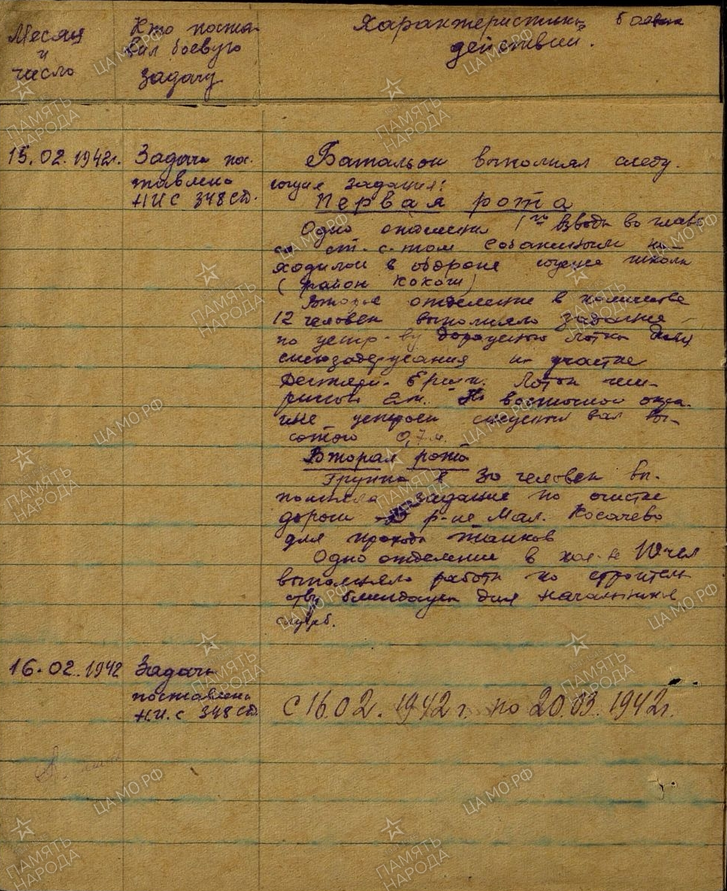 Месяц
и
число
Кто поста-
вил боевую
задачу
Характеристика боевых
действий.
15.02.1942г.
Задача пос-
тавлена
Н.И.С 348 сд.
Батальон выполнял следу-
ющие задания:
Первая рота
Одно отделение 1го взвода во главе
со ст. с-том на-
ходилось в обороне школы
(район Кокош)
Второе отделение в количестве
12 человек выполняло задание
по устр-ву
снегозадержания на участке
Дегтяри -
восточной окра-
ине устроен снежный вал вы-
сотою 0,7 м.
Вторая рота
Группа в 30 человек вы-
полняла задание по очистке
дороги в р-не Мал. Косачево
для прохода танков
Одно отделение в кол-ве 10 чел
выполняло работы по строитель-
ству блиндажа для начальника
служб.
16.02.1942
Задача
поставлена
Н.И.С 348 сд
С 16.02.1942 г. по 20.03.1942г.
ПАМЯТЬ
НАРОДА
ЦАМО.РФ